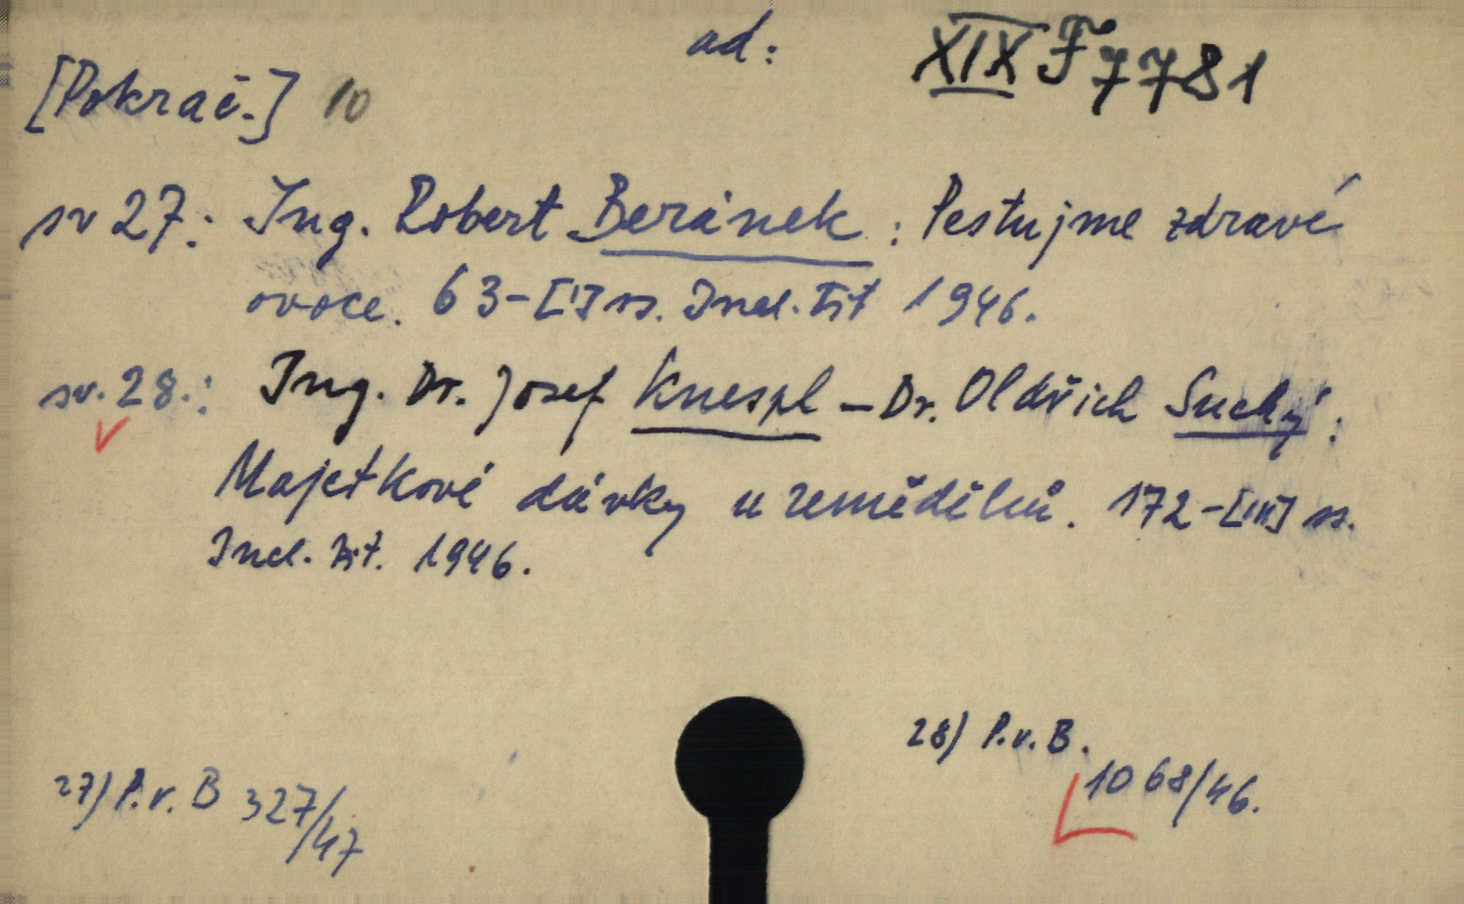 ad: XIX F 7781
[Pokrač.] 10
sv 27.: Ing. Robert Beránek : Pestujme zdravé
ovoce. 63-[I] ss. Incl. tit 1946.
sv. 28.: Ing. Dr. Josef Knespl – Dr. Oldřich Suchý :
Majetkové dávky u zemědělců. 172-[III] ss.
Incl. tit. 1946.
28) P.v.B.
1068/46.
27) P.v.B 327/47